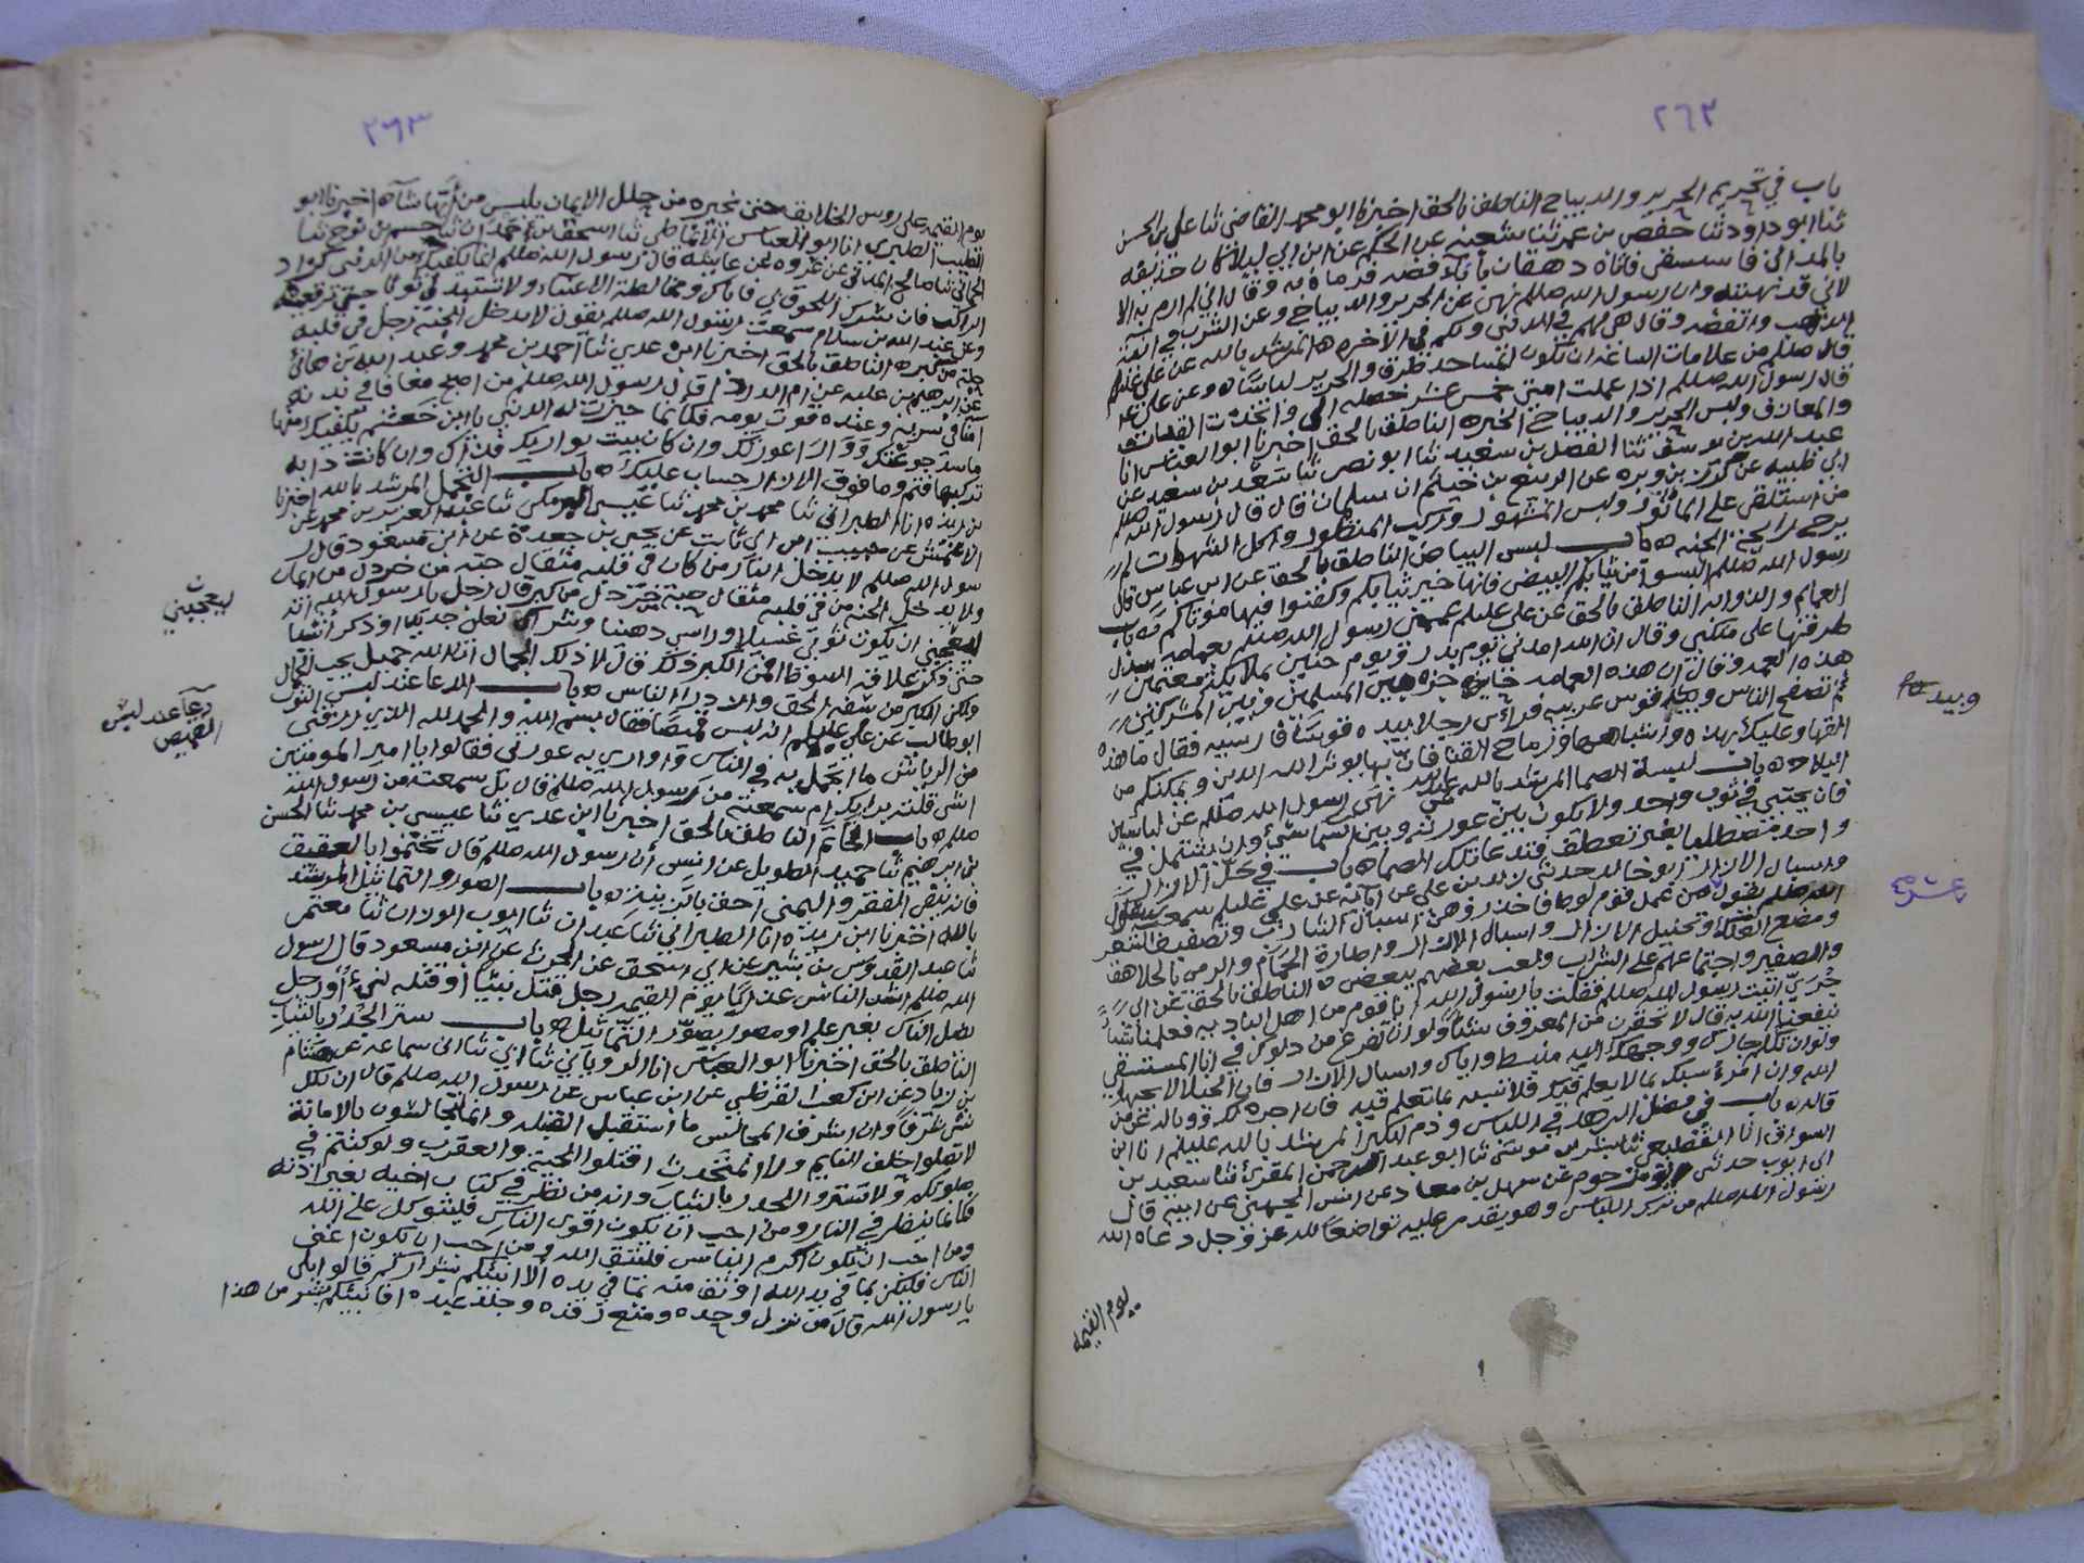 ٢٦٢
باب في تحريم الحرير والديباج الناطق بالحق اخبرنا ابو محمد القاضي ثنا علي بن الحسن
ثنا ابو داود ثنا حفص بن عمر ثنا شعبه عن الحكم عن ابن ابي ليلا كان حذيفه
بالمداين فاستسقى فاتاه دهقان باناء فضه فرماه به وقال اني لم ارم به الا
لاني قد نهيته وان رسول الله صللم نهى عن الحرير والديباج وعن الشرب في انية
الذهب والفضه وقال هي لهم في الدنيا ولكم في الاخره ه المرشد بالله عن علي عليلم
قال صللم من علامات الساعه ان تكون المساجد طرقا والحرير لباسا ه وعن علي
قال رسول الله صللم اذا عملت امتي خمس عشر خصله الى واتخذت القينات
والمعازف ولبس الحرير والديباج الخبره الناطق بالحق اخبرنا ابو العباس انا
عبد الله بن يوسف ثنا الفضل بن سعيد ثنا ابو نصر ثنا سعد بن سعيد عن
ابي طيبه عن كرز بن وبره عن الربيع بن خيثم ان سلمان قال قال رسول الله صللم
من استلقى على الماثور ولبس المشهور وركب المنظور واكل الشهوات لم
يرح رايحة الجنه ه باب لبس البياض الناطق بالحق عن ابن عباس قال
رسول الله صللم البسوا من ثيابكم البيض فانها خير ثيابكم وكفنوا فيها موتاكم ه باب
العمايم والذوايه الناطق بالحق عن علي عليلم عممني رسول الله صللم بعمامه سدل
طرفها على منكبي وقال ان الله امدني يوم بدر ويوم حنين بملايكة معتمين
هذه العمه وقال ان هذه العمامه حاجزه بين المسلمين وبين المشركين
ثم تصفح الناس وبيده قوس عربيه فراى رجلا بيده قوسا فارسيه فقال ما هذه
القها وعليك بهذه واشباهها ورماح القنا فان بها يويد الله الدين ويمكنكم من
البلاد ه باب لبسة الصما المرشد بالله نهى رسول الله صللم عن لباسين
فان يحتبي في ثوب واحد ولا يكون بين عورته وبين السما شي وان يشتمل في
واحد مضطلعا بغير تعطف فتدعا تلك الصما ه باب في حل الازار
واسبال الازار ابو خالد حدثني زيد بن علي عن ابايه عن علي عليلم سمعت رسول
الله صللم يقول من عمل قوم لوط فاحذروهن اسبال الشارب وتصفيف الشعر
ومضغ العلك وتحليل الازرار واسبال الازار واطارة الحمام والرمي بالجلاهق
والصفير واجتماعهم على الشراب ولعب بعضهم ببعض ه الناطق بالحق عن ابي
جري اتيت رسول الله صللم فقلت يا رسول الله انا قوم من اهل الباديه فعلمنا شيا
ينفعنا الله به قال لا تحقرن من المعروف شيئا ولو ان تفرغ من دلوك في انا المستسقي
ولو ان تكلم جارك ووجهك اليه منبسط واياك واسبال الازار فان الخيلا لا يحبها
الله وان امرء سبك بما لا يعلم فيك فلا تسبه بما تعلم فيه فان اجره لك ووباله على من
قاله ه باب في فضل الزهد في اللباس وذم الكبر المرشد بالله عليلم انا ابن
السواق انا القطيعي ثنا بشر بن موسى ثنا ابو عبد الرحمن المقرئ ثنا سعيد بن
ابي ايوب حدثني ابو مرحوم عن سهل بن معاد عن انس الجهني عن ابيه قال
رسول الله صللم من ترك اللباس وهو يقدر عليه تواضعا لله عز وجل دعاه الله
يوم القيمه
وبيده
٢٦٣
يوم القيمه على روس الخلايق حتى يخيره من حلل الايمان يلبس من ايها شاء ه اخبرنا ابو
الطيب الطبري انا ابو العباس الانماطي ثنا اسحق بن حمدان ثنا حسم بن نوح ثنا
الحماني ثنا صالح المدني عن عروه عن عايشه قال رسول الله صللم انما يكفيك من الدنيا كزاد
الراكب فان سرك اللحوق بي فاياك ومخالطة الاغنياء ولا تستبدلي ثوبا حتى ترقعيه
وعن عبد الله بن سلام سمعت رسول الله صللم يقول لا يدخل الجنه رجل في قلبه
حبة من كبر ه الناطق بالحق اخبرنا ابن عدي ثنا احمد بن محمد وعبد الله بن هانئ
عن ابرهيم بن عليه عن ام الدردا قال رسول الله صللم من اصبح معافا في بدنه
امنا في سربه وعنده قوت يومه فكانما حيزت له الدنيا يا ابن خعشم يكفيك منها
ما سد جوعتك ووارا عورتك وان كان بيت يواريك فذاك وان كانت دابه
تركبها فنعم وما فوق الازار حساب عليك ه باب التجمل المرشد بالله اخبرنا
بن ريذه انا الطبراني ثنا محمد بن محمد ثنا عيسى البرمكي ثنا عبد العزيز بن محمد عن
الاعمش عن حبيب ابن ابي ثابت عن يحيى بن جعدة عن ابن مسعود قال ر
سول الله صللم لا يدخل النار من كان في قلبه مثقال حبه من خردل من ايمان
ولا يدخل الجنه من في قلبه مثقال حبة خردل من كبر قال رجل يا رسول الله انه
ليعجبني ان يكون ثوبي غسيلا وراسي دهينا وشراك نعلي جديدا وذكر اشيا
حتى ذكر علاقة السوط افمن الكبر ذلك قال لا ذلك الجمال ان الله جميل يحب الجمال
ولكن الكبر من سفه الحق وازدرا الناس ه باب الدعا عند لبس الثوب
ابو طالب عن علي عليلم انه لبس قميصا فقال بسم الله والحمد لله الذي رزقني
من الرياش ما اتجمل به في الناس واواري به عورتي فقالوا يا امير المومنين
اشي قلته برايك ام سمعته من رسول الله صللم قال بل سمعته من رسول الله
صللم ه باب الخاتم الناطق بالحق اخبرنا ابن عدي ثنا عيسى بن محمد ثنا الحسن
بن ابرهيم ثنا حميد الطويل عن انس ان رسول الله صللم قال تختموا بالعقيق
فانه ينفي الفقر واليمنى احق بالزينه ه باب الصور والتماثيل المرشد
بالله اخبرنا ابن ريذه انا الطبراني ثنا عبدان ثنا ايوب الوزان ثنا معتمر
ثنا عبد القدوس بن بشير عن ابي اسحق عن الحرث عن ابن مسعود قال رسول
الله صللم اشد الناس عذابا يوم القيمه رجل قتل نبيا او قتله نبي او رجل
يضل الناس بغير علم او مصور يصور التماثيل ه باب ستر الجدر بالثياب
الناطق بالحق اخبرنا ابو العباس انا الروياني ثنا ابي ثنا ابن سماعه عن هشام
بن زياد عن ابن كعب القرظي عن ابن عباس عن رسول الله صللم قال ان لكل
شي شرفا وان اشرف المجالس ما استقبل القبله وانما يتجالسون بالامانة
لا تصلوا خلف النايم ولا المتحدث اقتلوا الحية والعقرب ولو كنتم في
صلوتكم ولا تستروا الجدر بالثياب وانه من نظر في كتاب اخيه بغير اذنه
فكانما ينظر في النار ومن احب ان يكون اقوى الناس فليتوكل على الله
ومن احب ان يكون اكرم الناس فليتق الله ومن احب ان يكون اغنى
الناس فليكن بما في يد الله اوثق منه بما في يده الا انبئكم بشراركم قالوا بلى
يا رسول الله قال من نزل وحده ومنع رفده وجلد عبده ه افانبئكم بشر من هذا
ليعجبني
دعآ عند لبس
القميص